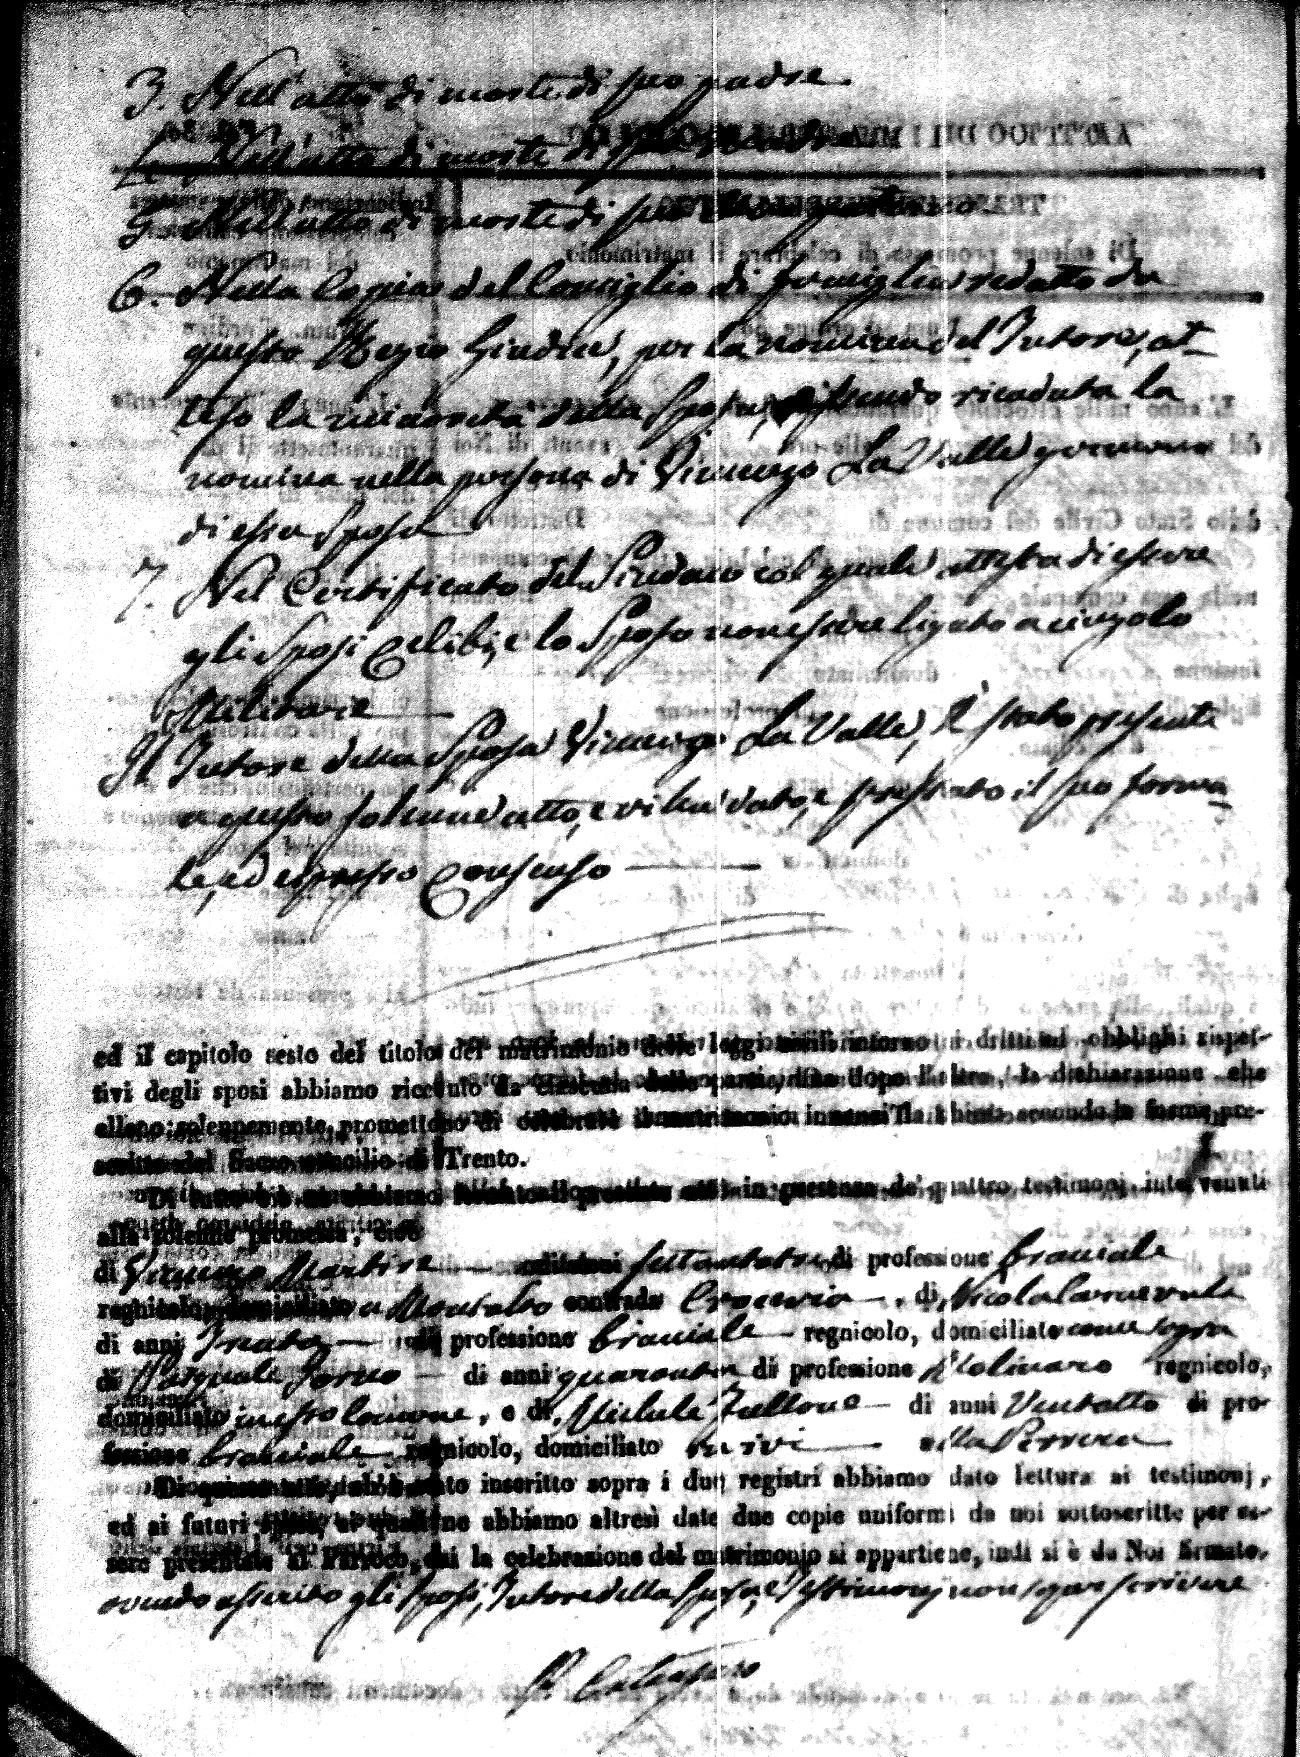 3. Nell'atto di morte di suo padre
Nell'atto di morte di
5. Nell'atto di morte di suo
6. Nella Copia del Consiglio di famiglia redatto da
questo Regio Giudice, per la nomina del Tutore, at-
teso la minorità della Sposa, essendo ricaduta la
nomina nella persona di Vincenzo La Valle germano
di essa Sposa
7. Nel Certificato del Sindaco col quale attesta di essere
gli Sposi Celibi, e lo Sposo non essere ligato a cingolo
Militare
Il Tutore della Sposa Vincenzo La Valle, è stato presente
a questo solenne atto, e vi ha dato, e prestato il suo forma-
le, ed espresso Consenso
ed il capitolo sesto del titolo del matrimonio delle leggi civili intorno i dritti ed obblighi rispet-
tivi degli sposi abbiamo ricevuto da ciascuna delle parti, una dopo l'altra, la dichiarazione che
elleno solennemente promettono di celebrare il matrimonio innanzi la chiesa secondo le forme pre-
scritte dal Sacro concilio di Trento.
Di tutto ciò ne abbiamo formato il presente atto in presenza de' quattro testimonj intervenuti
alla solenne promessa, cioè
di Vincenzo Martire di anni settantatre di professione braciale
regnicolo, domiciliato a Montalto contrada, di Nicola Carnevale
di anni Trenta di professione braciale regnicolo, domiciliato come sopra
di Pasquale di anni quaranta di professione Molinaro regnicolo,
domiciliato in esso Comune, e di Michele di anni Ventotto di pro-
fessione braciale regnicolo, domiciliato ivi alla
Di questo atto, ch'è stato inscritto sopra i due registri abbiamo dato lettura ai testimonj,
ed ai futuri sposi, ai quali ne abbiamo altresì date due copie uniformi da noi sottoscritte per es-
sere presentate al Parroco, cui la celebrazione del matrimonio si appartiene, indi si è da Noi firmato.
avendo asserito gli Sposi, Tutore della Sposa, e Testimonj non saper scrivere